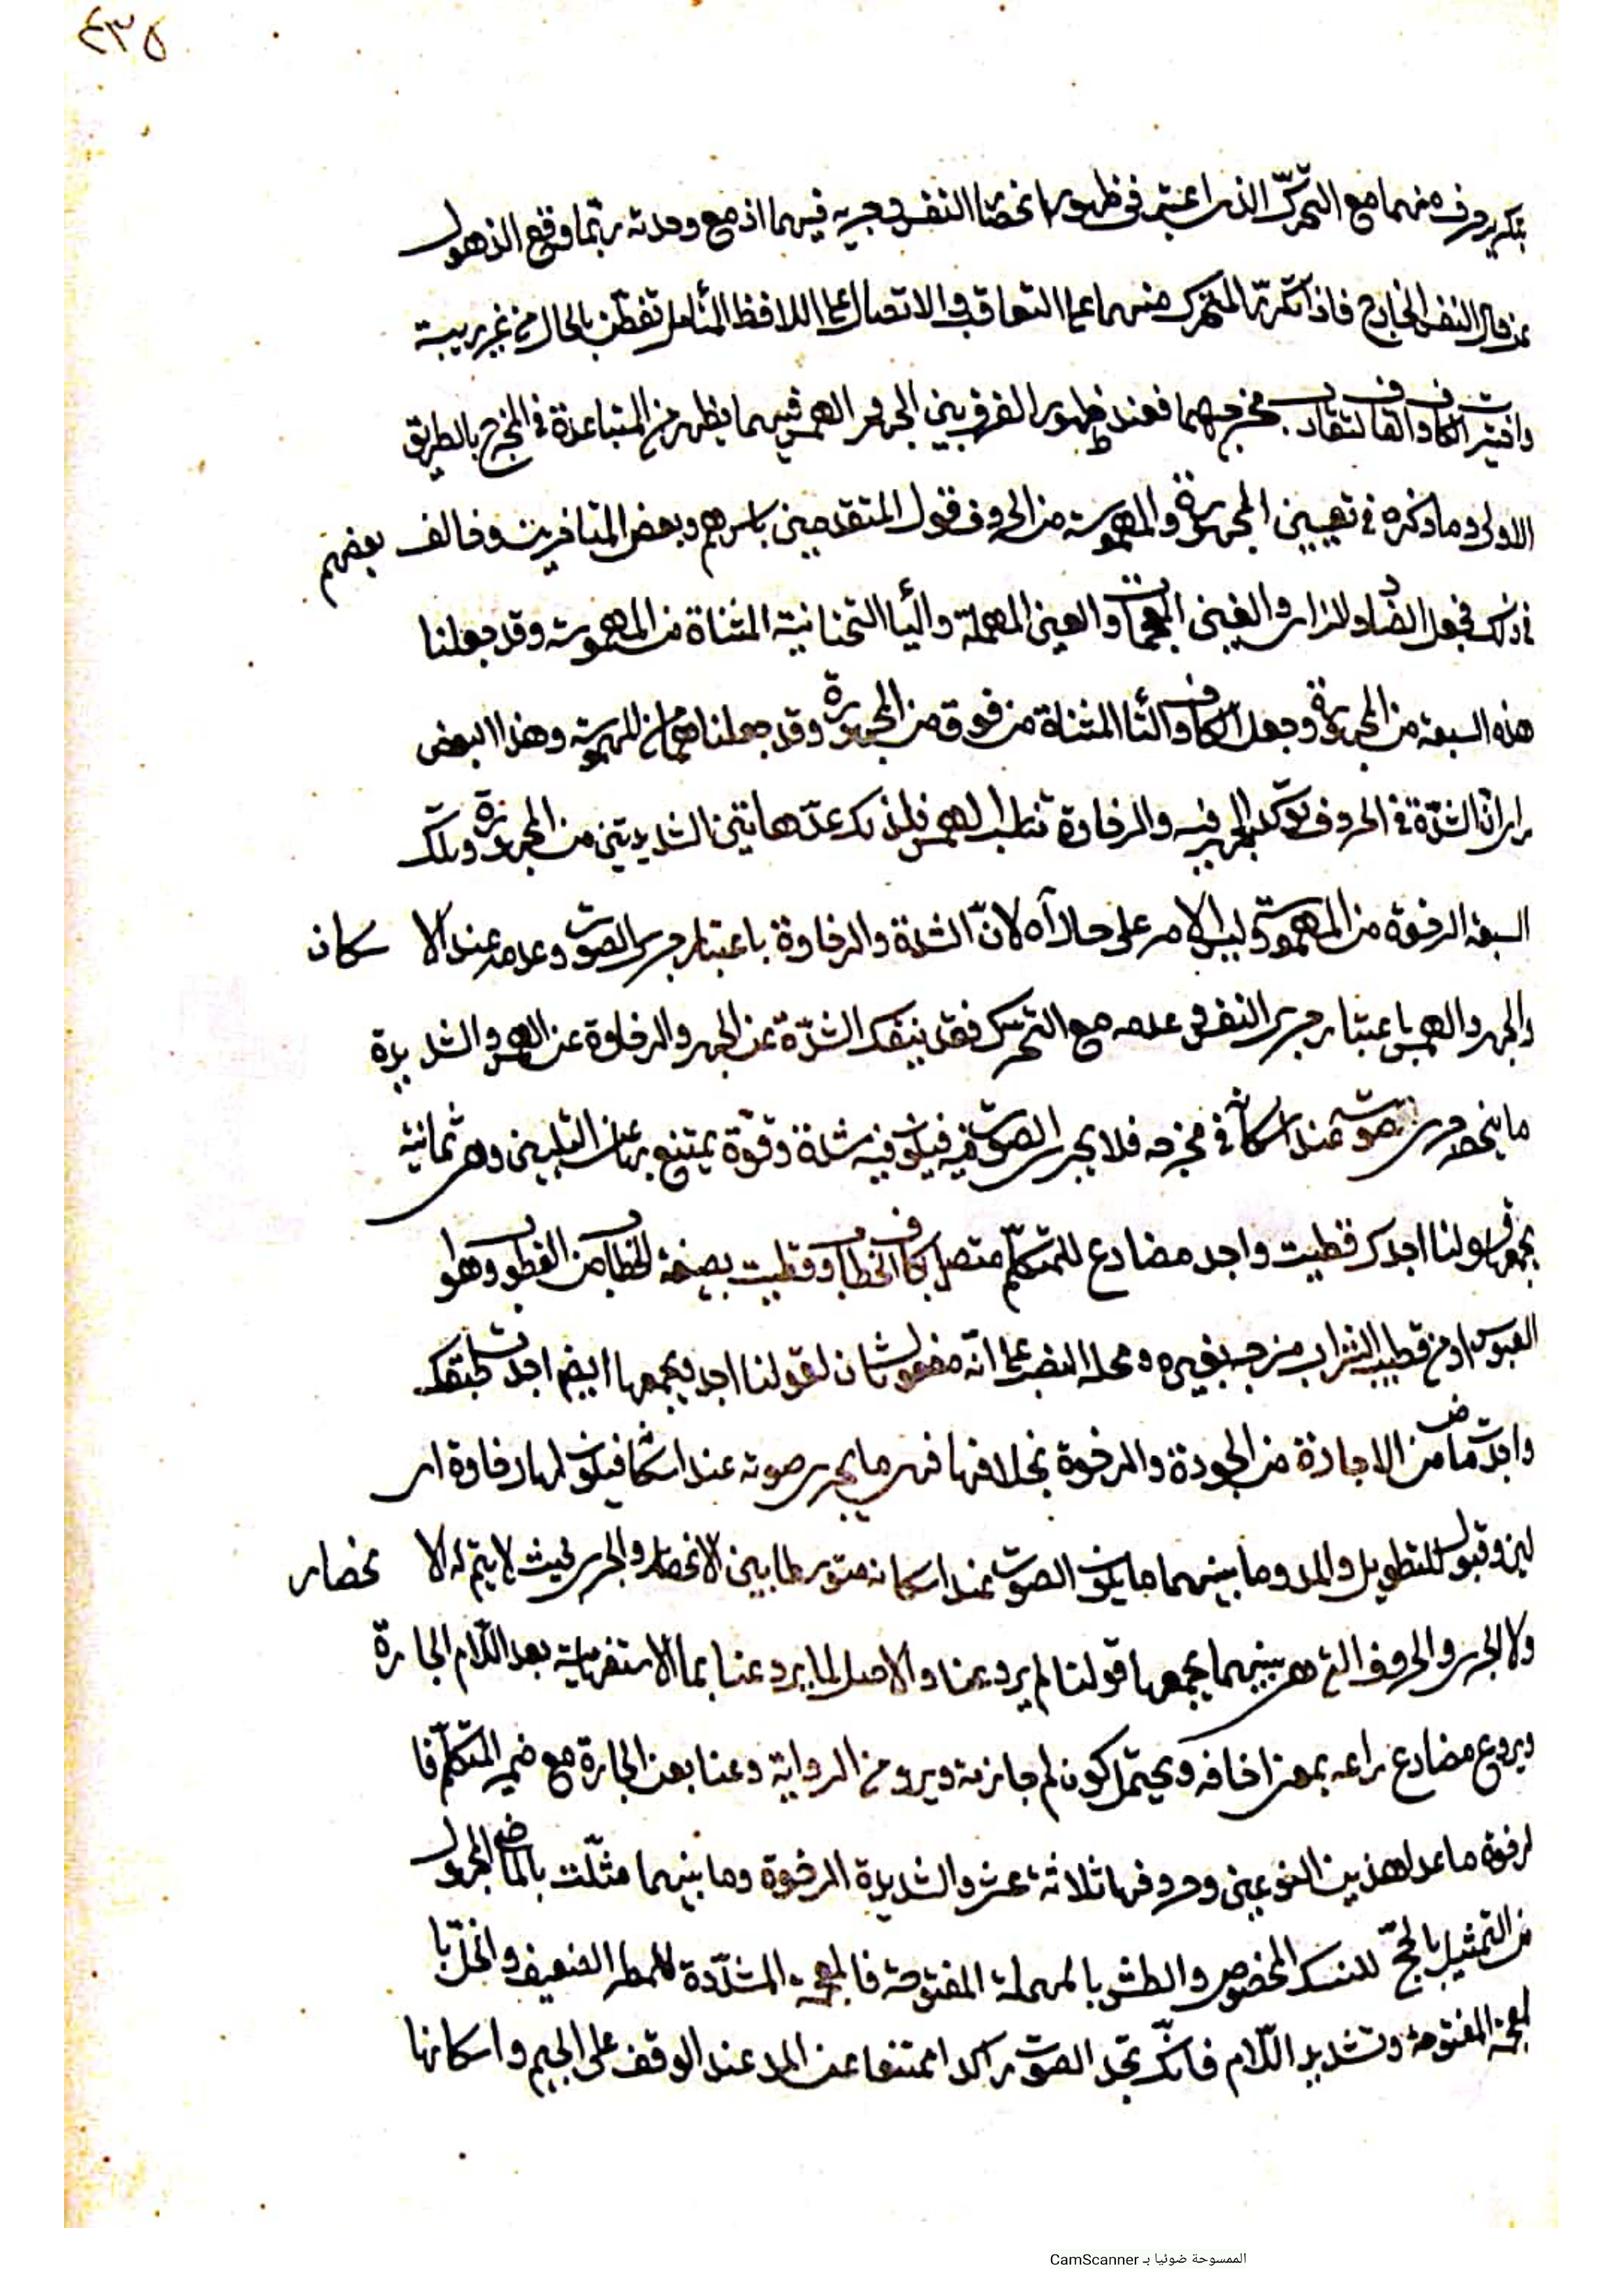 ٤٣٥
بتكرير حرف منهما مع التحرك الذي اعتبر في ظهور انحصار النفس وجريه فيهما اذ مع وحدته ربما وقع الذهول
عن حال النفس الخارج فاذا تكرر المتحرك منهما على التعاقب والاتصال على اللافظ المتأمل تفطن بالحال من غير ريبة
واختير الكاف والقاف لتقارب مخرجهما فعند ظهور الفرق بين الجهر والهمس فيهما يظهر من المتباعدة في المخرج بالطريق
الاولى وما ذكره في تعيين المجهورة والمهموسة من الحروف قول المتقدمين باسرهم وبعض المتاخرين وخالف بعضهم
في ذلك فجعل الضاد والزاي والغين المعجمات والعين المهملة والياء التحتانية المثناة من المهموسة وقد جعلنا
هذه السبعة من المجهورة وجعل الكاف والتاء المثناة من فوق من المجهورة وقد جعلناهما من المهموسة وهذا البعض
راى ان الشدة في الحروف تؤكد الجهر فيه والرخاوة تناسب الهمس فلذلك عد هاتين الشديدتين من المجهورة وتلك
السبعة الرخوة من المهموسة وليس الامر على ما رآه لان الشدة والرخاوة باعتبار جري الصوت وعدمه عند الاسكان
والجهر والهمس باعتبار جري النفس وعدمه مع التحرك فقد ينفك الشدة عن الجهر والرخاوة عن الهمس والشديدة
ما ينحصر جري صوته عند اسكانه في مخرجه فلا يجري الصوت فيه فيكون فيه شدة وقوة يمتنع بهما عن التليين وهي ثمانية
يجمعها قولنا اجدك قطبت واجد مضارع للمتكلم متصل بكاف الخطاب وقطبت بصيغة الخطاب من القطوب وهو
العبوس او من قطب الشراب مزجه بغيره ومحله النصب على انه مفعول ثان لقولنا اجد ويجمعها ايضا اجدت طبقك
واجدت ماض من الاجادة من الجودة والرخوة بخلافها فهي ما يجري صوته عند اسكانها فيكون لها رخاوة اي
لين وقبول للتطويل والمد وما بينهما ما يكون الصوت عند اسكانه متوسطا بين الانحصار والجري بحيث لا يتم له الانحصار
ولا الجري والحروف التي هي بينهما يجمعها قولنا لم يرو عنا والاصل لما يرد عنا بما الاستفهامية بعد اللام الجارة
ويروع مضارع راعه بمعنى اخافه ويحتمل كون لم جازمة ويرو من الرواية وعنا بعن الجارة مع ضمير المتكلم فا
لرخوة ما عدا هذين النوعين وحروفها ثلاثة عشر والشديدة الرخوة وما بينهما مثلت بالماضي المجهول
من التمثيل بالحج للنسك المخصوص والطش بالمهملة المفتوحة فالمعجمة المشددة للمطر الضعيف والخل با
لمعجمة المفتوحة وتشديد اللام فانك تجد الصوت راكدا ممتنعا عن المد عند الوقف على الجيم واسكانها
الممسوحة ضوئيا بـ CamScanner